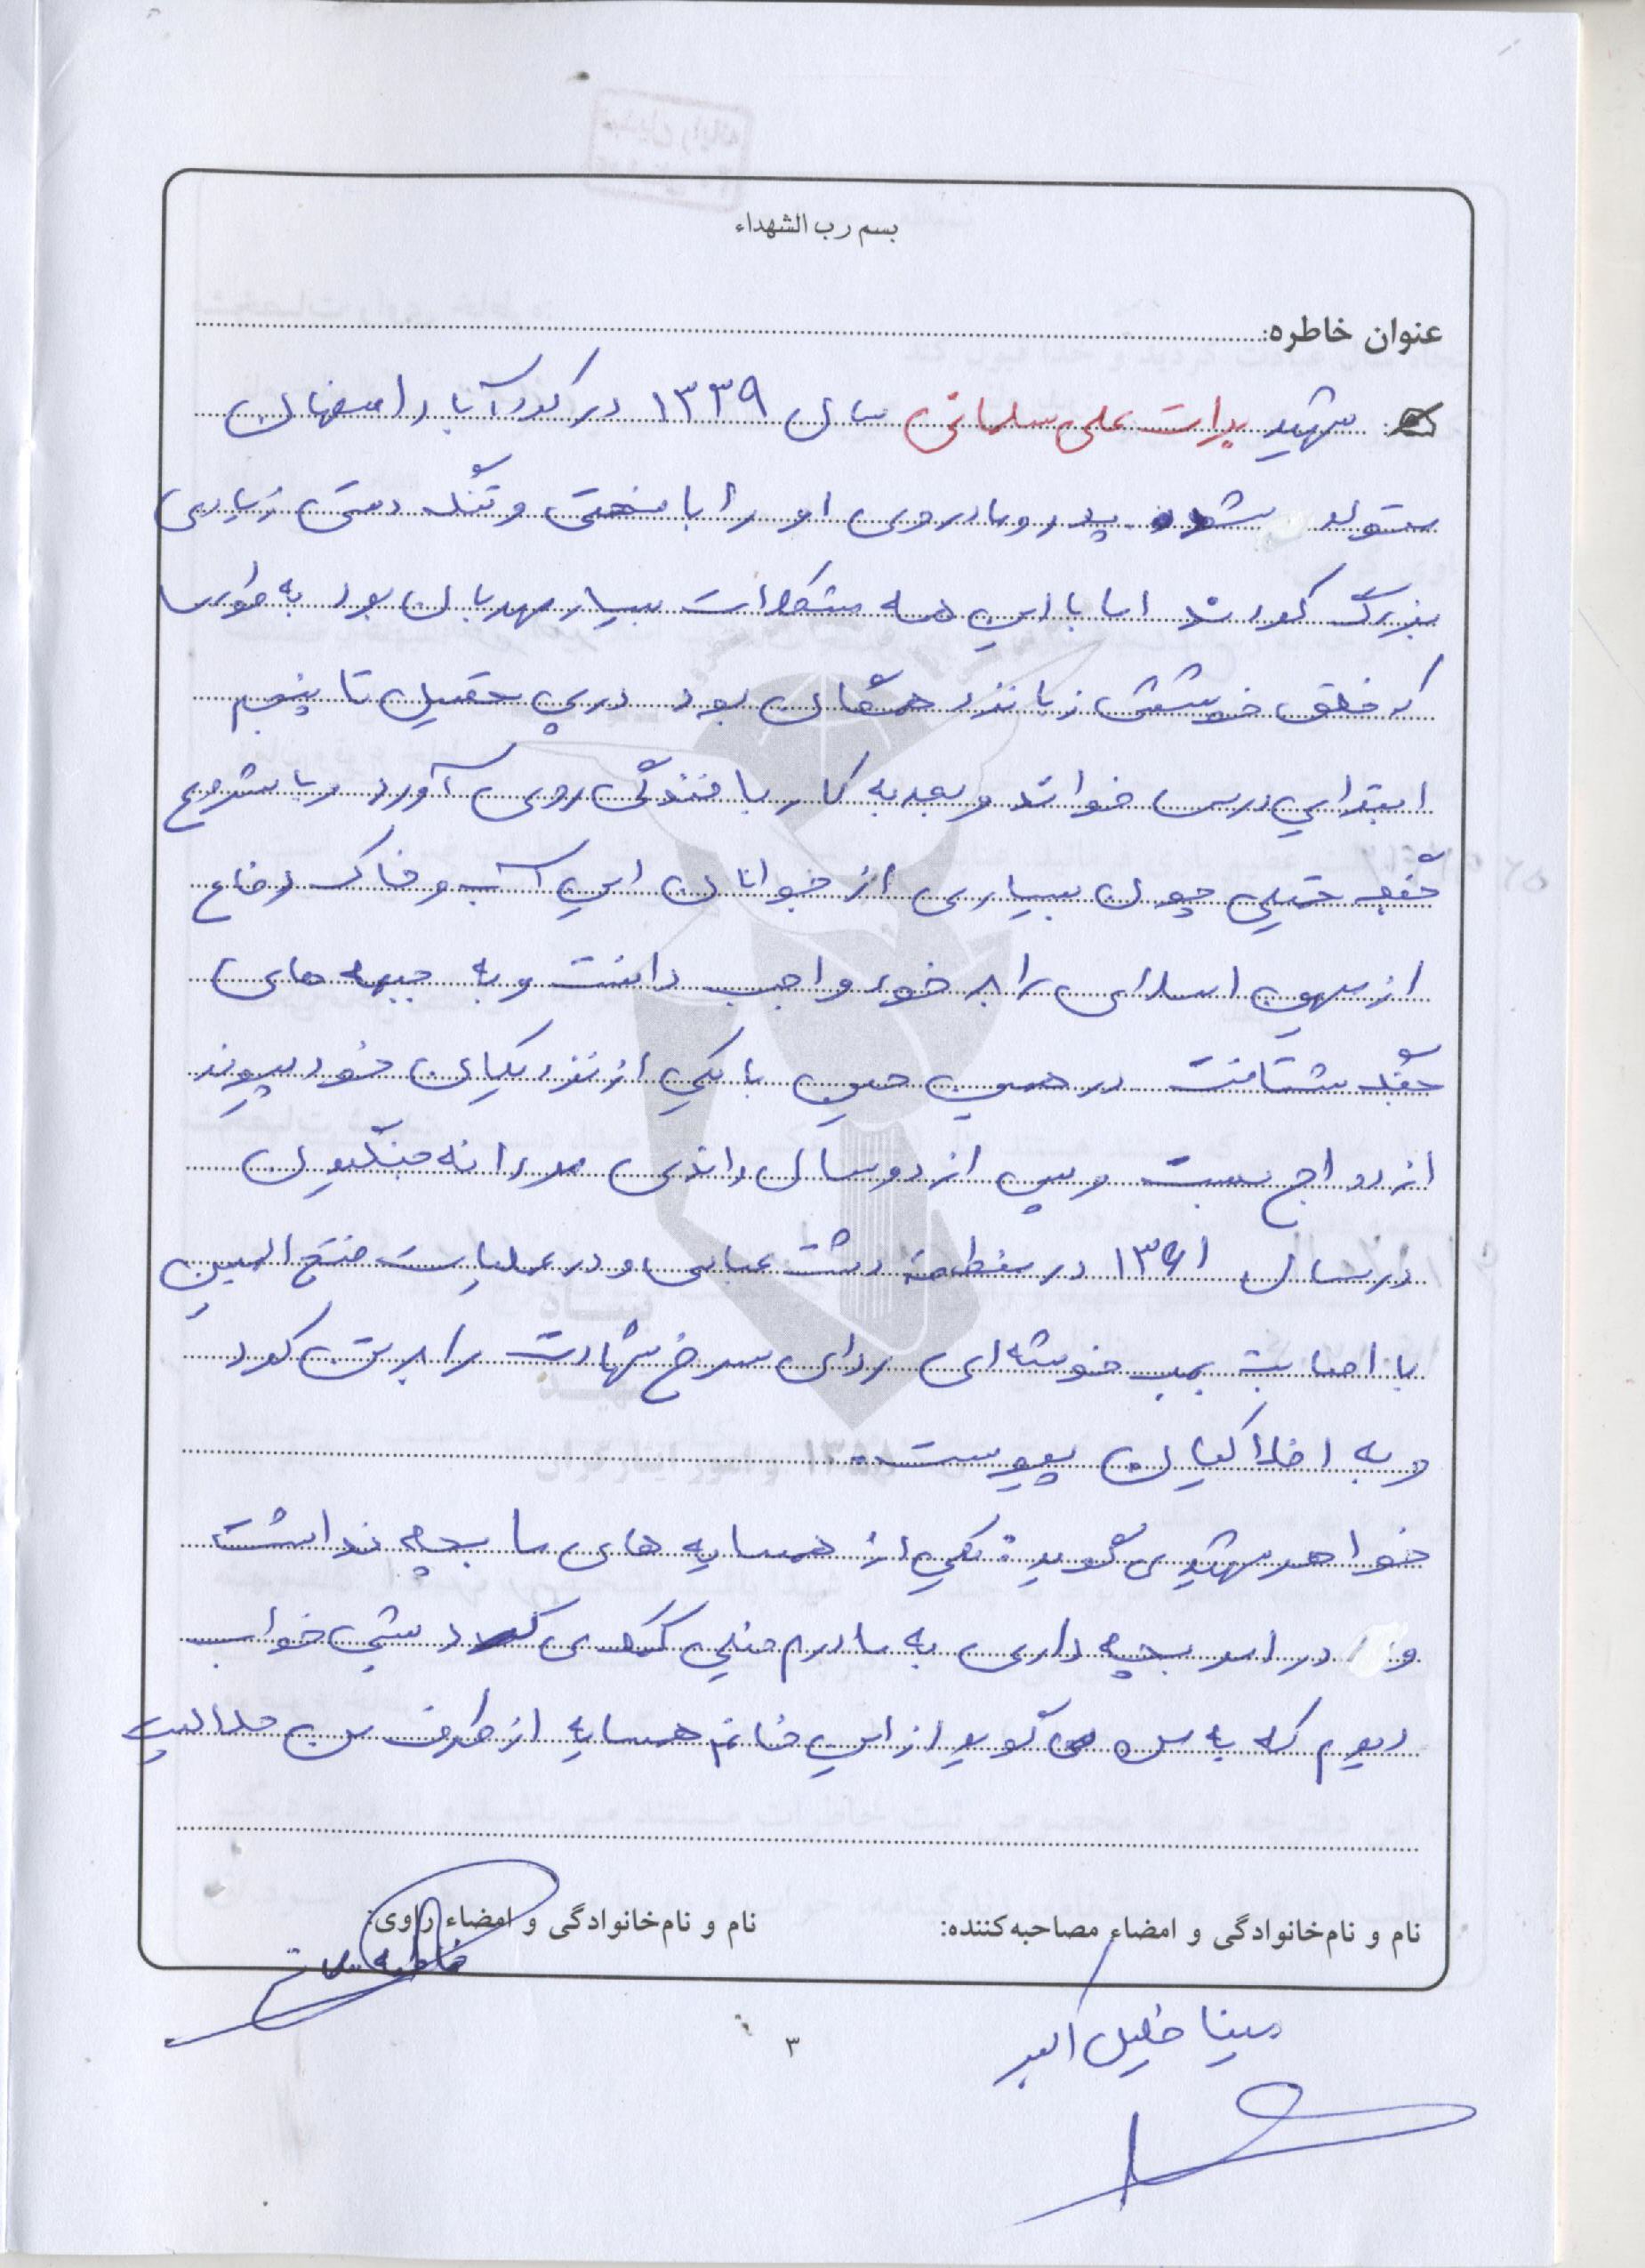 بسم رب الشهداء
عنوان خاطره:
شهید برات علی سلمانی سال ۱۳۳۹ در کردآباد اصفهان
متولد شد. پدر و مادر وی او را با سختی و تنگ دستی زیادی
بزرگ کردند اما با این همه مشکلات بسیار مهربان بود به طوری
که خلق خوشش زبانزد همگان بود در پی تحصیل تا پنجم
ابتدایی درس خواند و بعد به کار بافندگی روی آورد و با شروع
جنگ تحمیلی چون بسیاری از جوانان این آب و خاک دفاع
از میهن اسلامی را بر خود واجب دانست و به جبهه های
جنگ شتافت در همین حین با یکی از نزدیکان خود پیوند
ازدواج بست و پس از دو سال اندی مردانه جنگیدن
در سال ۱۳۶۱ در منطقه دشت عباس و در عملیات فتح المبین
با اصابت بمب خوشه ای ردای سرخ شهادت را بر تن کرد
و به افلاکیان پیوست.
خواهر شهید می گوید: یکی از همسایه های ما بچه نداشت
و در امر بچه داری به مادرم خیلی کمک می کرد شبی خواب
دیدم که به من می گوید از این خانم همسایه از طرف من حلالیت
نام و نام‌خانوادگی و امضاء مصاحبه‌کننده:
نام و نام‌خانوادگی و امضاء راوی:
فاطمه
مینا خلیل اکبر
۳